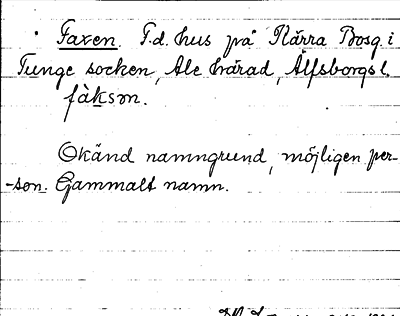 Faxen. F.d. hus på Kärra Bosg. i
Tunge socken, Ale härad, Älfsborgs l.
fàksøn.
Okänd namngrund, möjligen per-
-son. Gammalt namn.